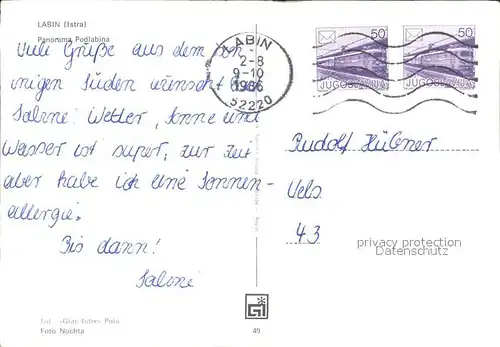 LABIN (Istra)
Panorama Podlabina
Viele Grüße aus dem son
nigen Süden wünscht Euch
Sabine! Wetter, Sonne und
Wasser ist super, zur Zeit
aber habe ich eine Sonnen-
allergie.
Bis dann!
Sabine
LABIN
2-8
9-10
1986
52220
50
JUGOSLAVIJA
50
JUGOSLAVIJA
Rudolf Hübner
Wels
43
privacy protection
Datenschutz
Izd. »Glas Istre« Pula
Foto Nochta
GI
49